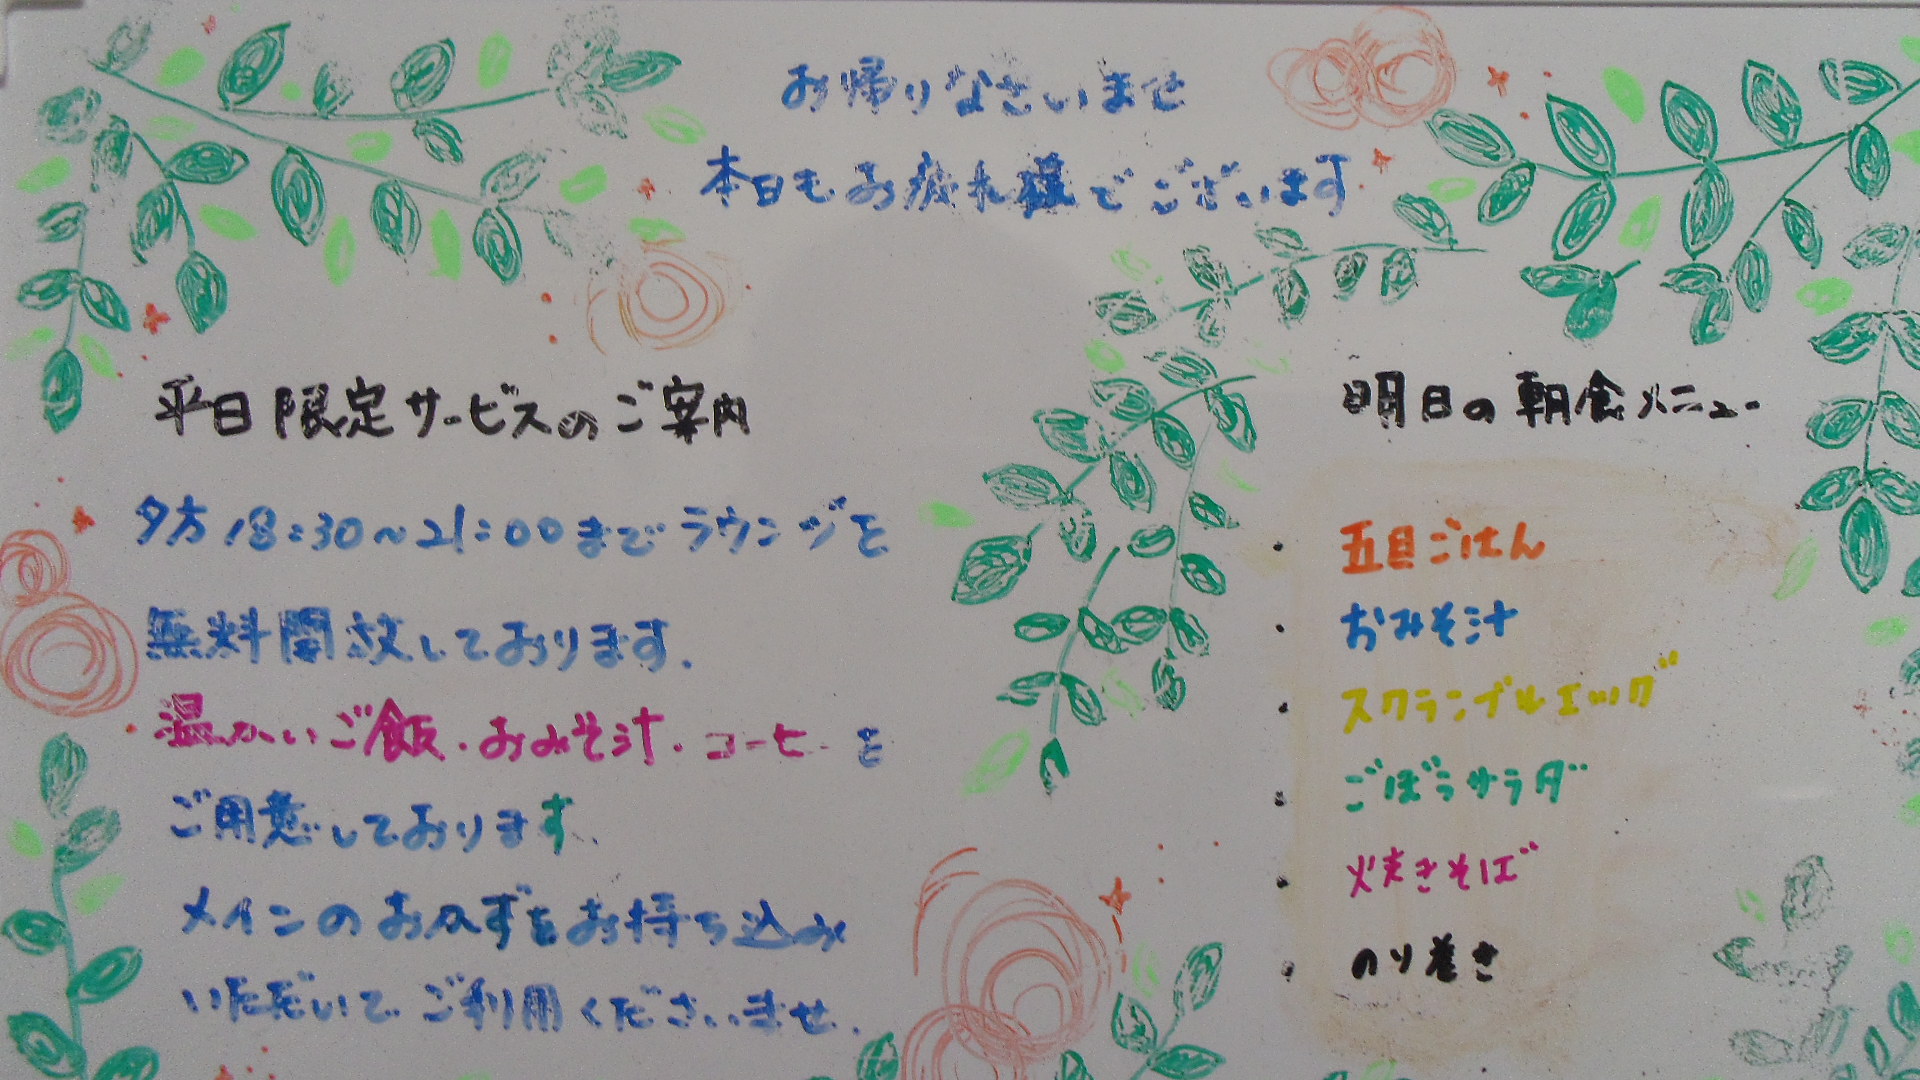 お帰りなさいませ
本日もお疲れ様でございます
平日限定サービスのご案内
夕方18:30～21:00までラウンジを
無料開放しております.
温かいご飯・おみそ汁・コーヒーを
ご用意しております.
メインのおかずをお持ち込み
いただいてご利用くださいませ.
明日の朝食メニュー
・五目ごはん
・おみそ汁
・スクランブルエッグ
・ごぼうサラダ
・焼きそば
・のり巻き